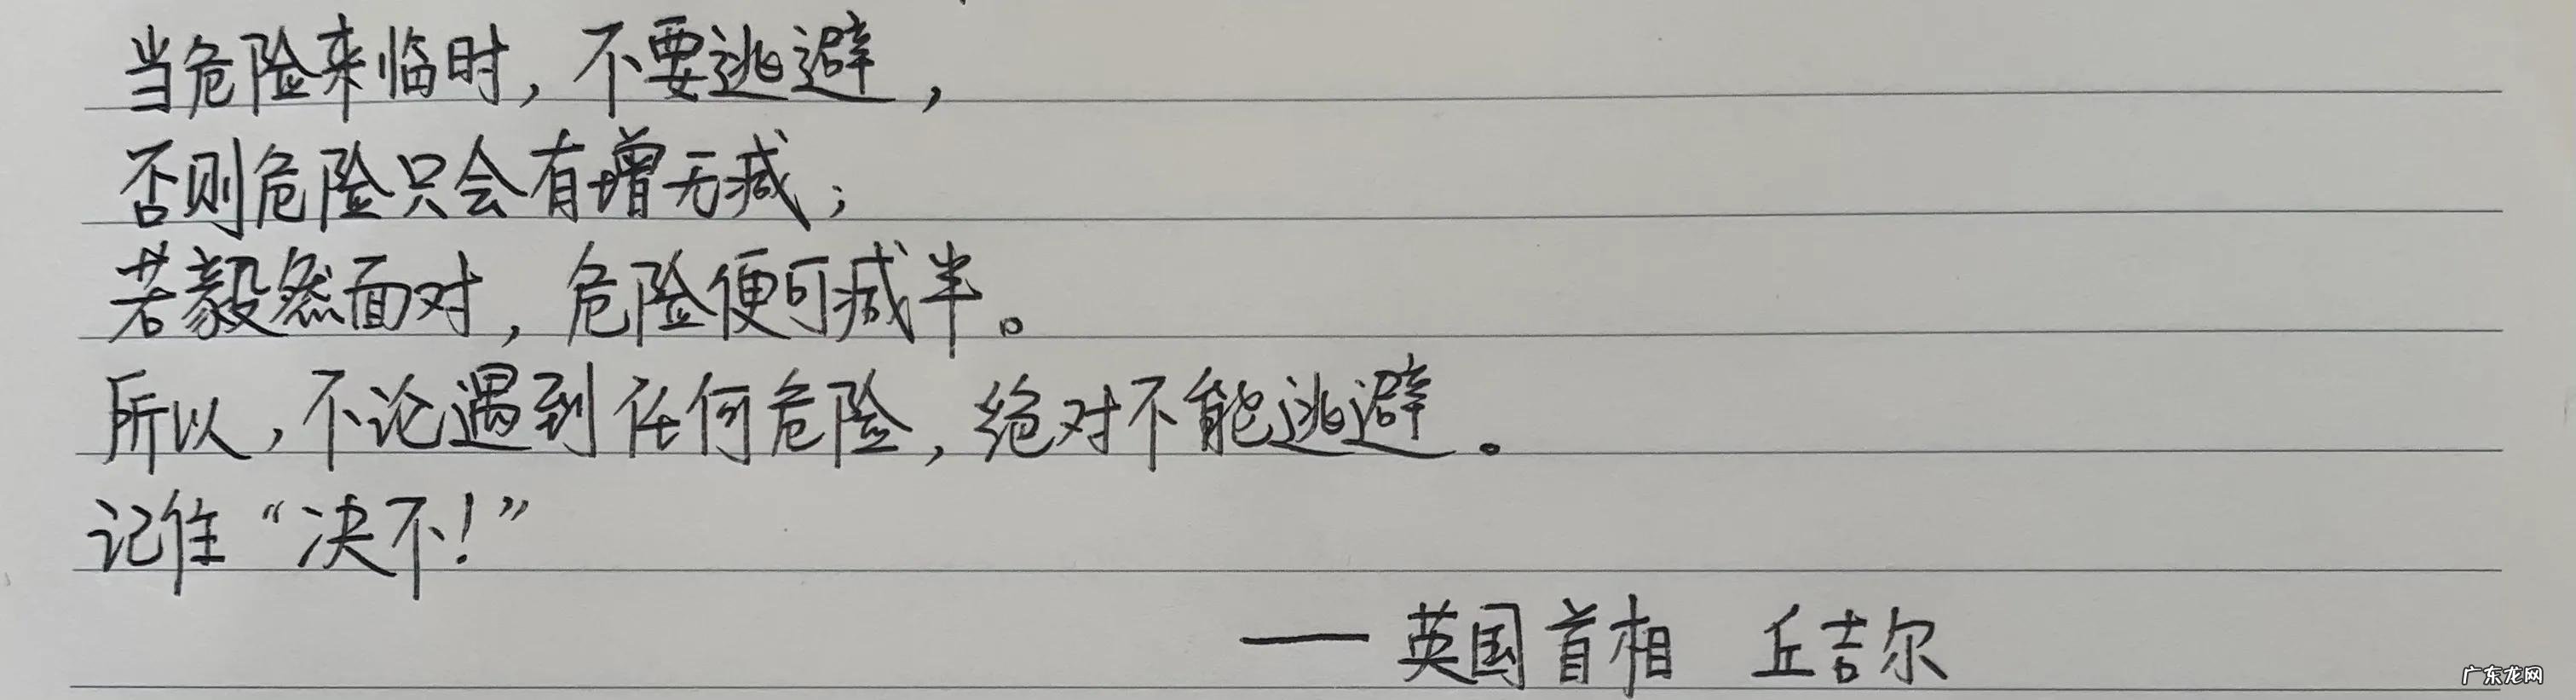 当危险来临时，不要逃避，
否则危险只会有增无减；
若毅然面对，危险便可减半。
所以，不论遇到任何危险，绝对不能逃避。
记住“决不！”
—— 英国首相 丘吉尔
广东龙网